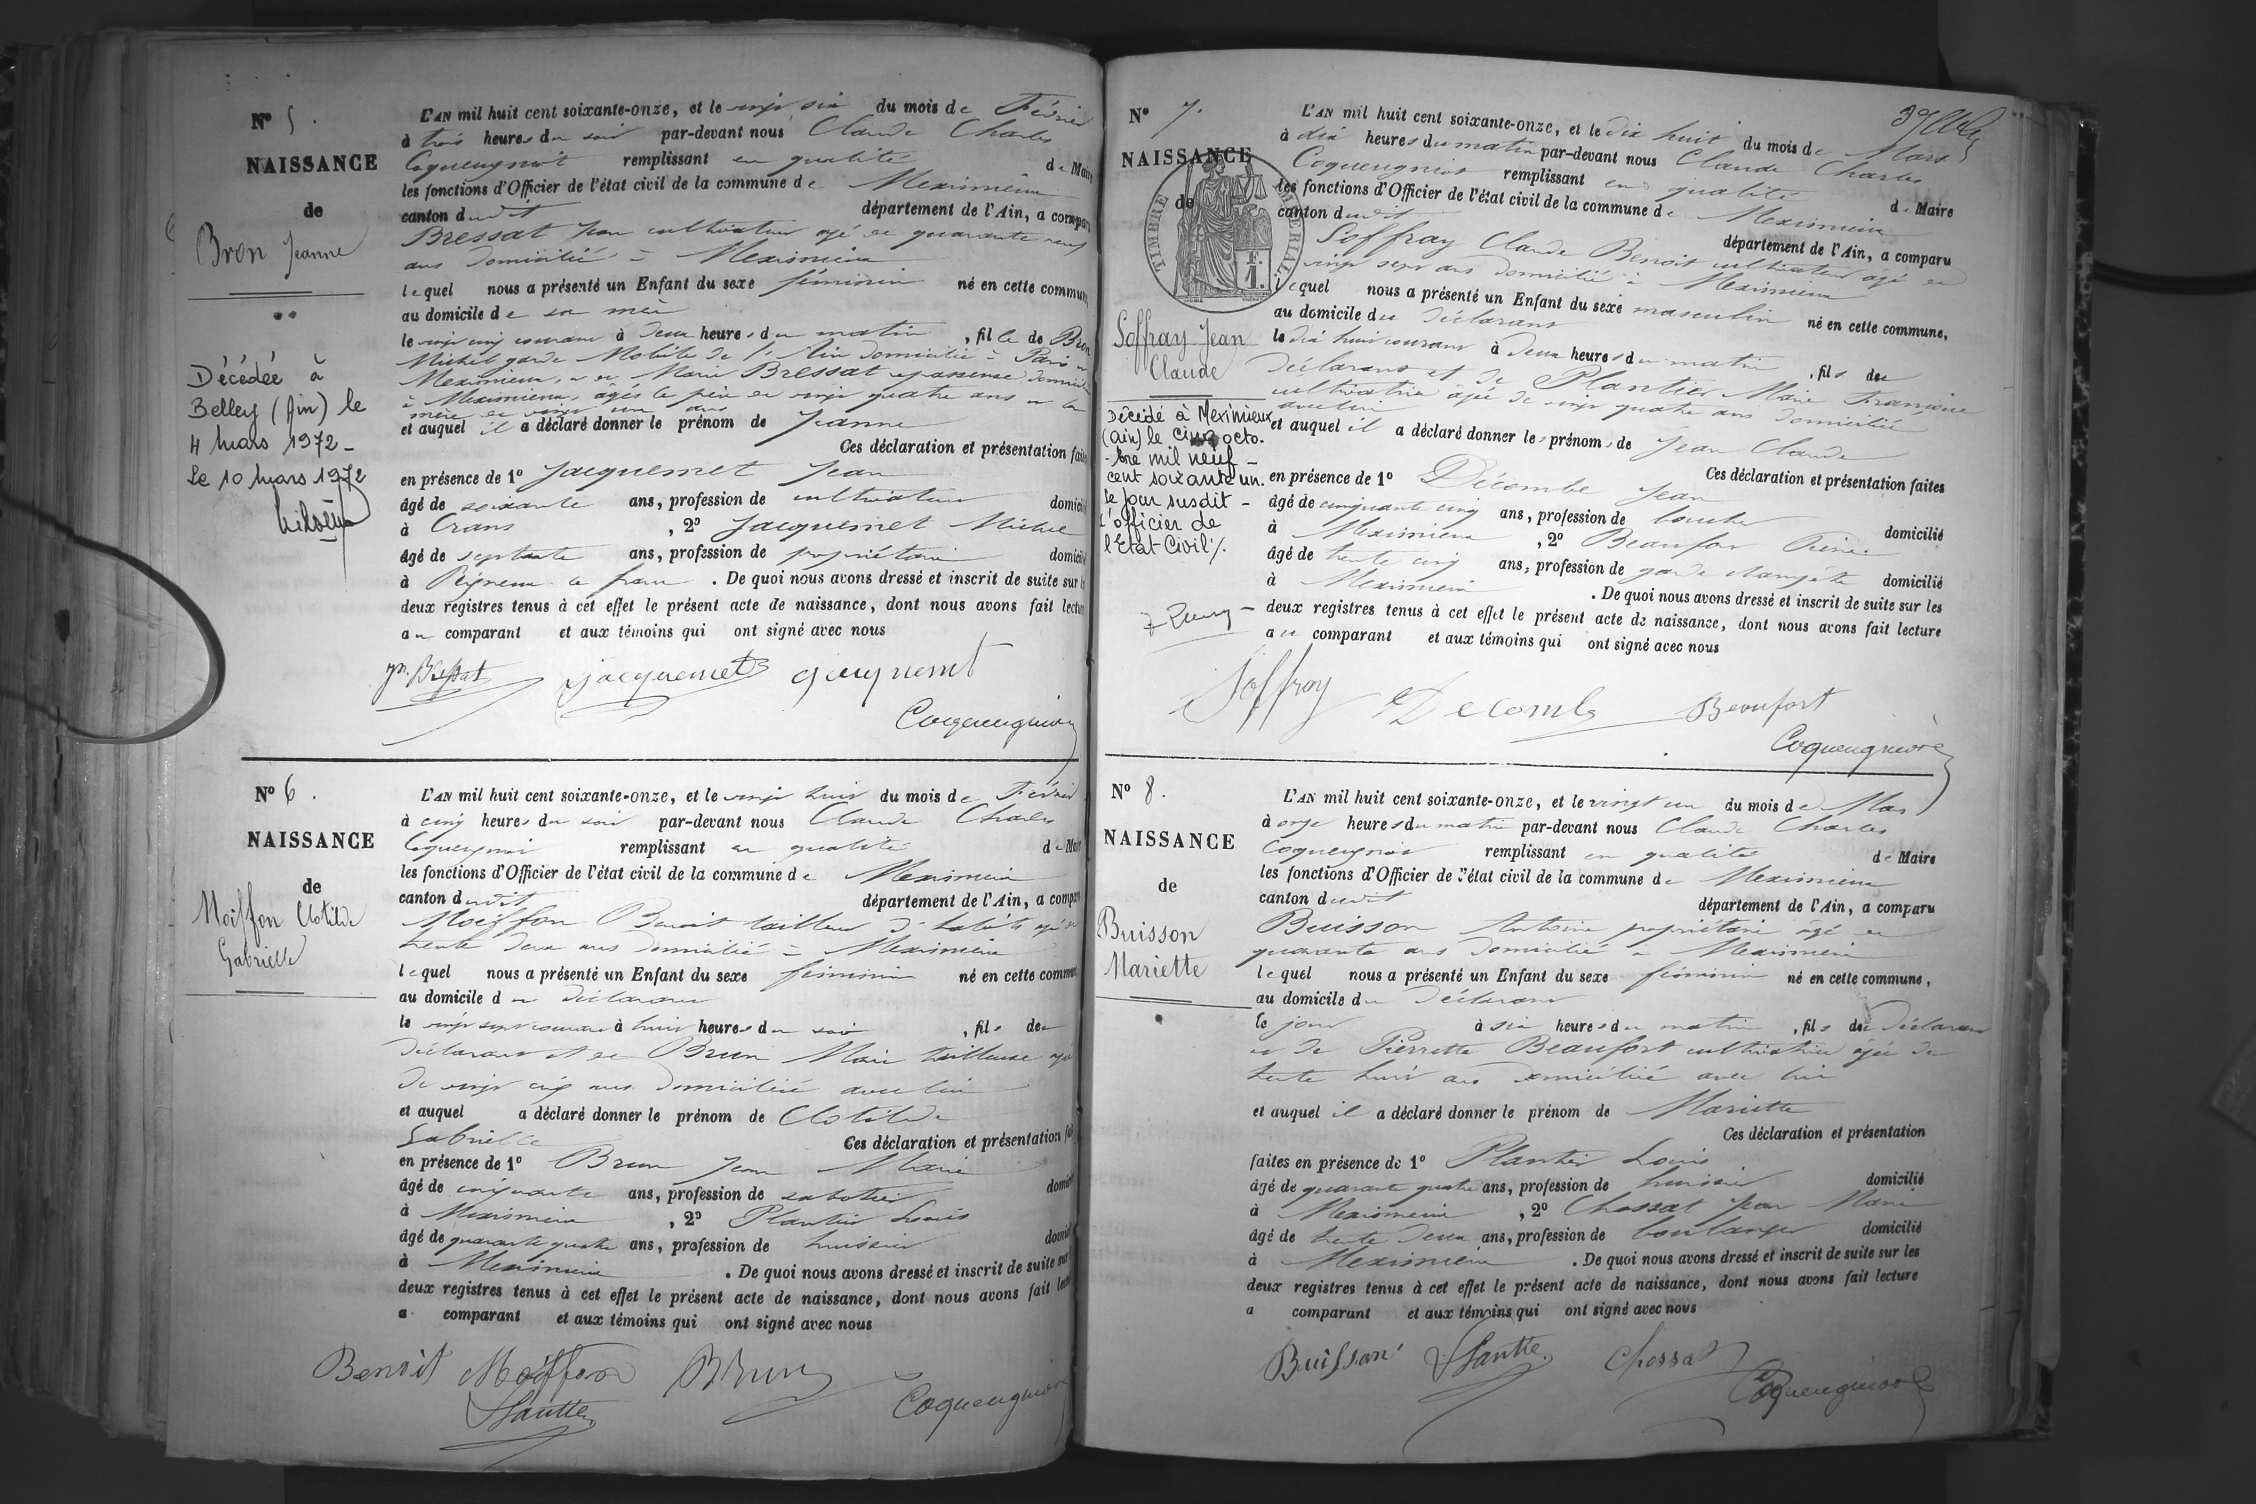 N° 5.
NAISSANCE
de
Bron Jeanne
Décédée à
Belley (Ain) le
4 mars 1972 -
Le 10 mars 1972
L'AN mil huit cent soixante-onze, et le vingt six du mois de Février
à trois heures du soir par-devant nous Claude Charles
Coqueugniot remplissant en qualité de Maire
les fonctions d'Officier de l'état civil de la commune de Meximieux
canton dudit département de l'Ain, a comparu
Bressat Jean cultivateur âgé de quarante neuf
ans domicilié à Meximieux
lequel nous a présenté un Enfant du sexe féminin né en cette commune
au domicile de sa mère
le vingt cinq courant à deux heures du matin, fille de Bron
Michel garde Mobile de l'Ain domicilié à Paris
Meximieux, et de Marie Bressat domiciliée
à Meximieux, âgés le père de vingt quatre ans et la
mère de vingt un ans
et auquel il a déclaré donner le prénom de Jeanne
Ces déclaration et présentation faites
en présence de 1° Jacquemet Jean
âgé de soixante ans, profession de cultivateur domicilié
à Crans, 2° Jacquemet Michel
âgé de septante ans, profession de propriétaire domicilié
à Peyzieux. De quoi nous avons dressé et inscrit de suite sur les
deux registres tenus à cet effet le présent acte de naissance, dont nous avons fait lecture
au comparant et aux témoins qui ont signé avec nous
jn. Bressat Jacquemet Jacquemet
Coqueugniot
N° 6.
NAISSANCE
de
Moiffon Clotilde
Gabrielle
L'AN mil huit cent soixante-onze, et le vingt huit du mois de Février
à cinq heures du soir par-devant nous Claude Charles
Coqueugniot remplissant en qualité de Maire
les fonctions d'Officier de l'état civil de la commune de Meximieux
canton dudit département de l'Ain, a comparu
Moiffon Benoit tailleur d'habits âgé de
trente deux ans domicilié à Meximieux
lequel nous a présenté un Enfant du sexe féminin né en cette commune
au domicile du déclarant
le vingt sept courant à huit heures du soir, fils du
déclarant et de Brun Marie tailleuse âgée
de vingt cinq ans domiciliée avec lui
et auquel a déclaré donner le prénom de Clotilde
Gabrielle Ces déclaration et présentation faites
en présence de 1° Brun Jean Marie
âgé de cinquante ans, profession de sabotier domicilié
à Meximieux, 2° Plantier Louis
âgé de quarante quatre ans, profession de huissier domicilié
à Meximieux. De quoi nous avons dressé et inscrit de suite sur
deux registres tenus à cet effet le présent acte de naissance, dont nous avons fait lecture
a comparant et aux témoins qui ont signé avec nous
Benoit Moiffon Brun
Plantier Coqueugniot
N° 7.
NAISSANCE
de
TIMBRE IMPÉRIAL
1 F.
Soffray Jean
Claude
Décidé à Meximieux
(ain) le cinq octo-
-bre mil neuf -
cent soixante un.
Le jour susdit -
l'officier de
l'Etat Civil ./.
L'AN mil huit cent soixante-onze, et le dix huit du mois de Mars
à dix heures du matin par-devant nous Claude Charles
Coqueugniot remplissant en qualité de Maire
les fonctions d'Officier de l'état civil de la commune de Meximieux
canton dudit département de l'Ain, a comparu
Soffray Claude Benoit cultivateur âgé de
vingt sept ans domicilié à Meximieux
lequel nous a présenté un Enfant du sexe masculin né en cette commune,
au domicile du déclarant
le dix huit courant à deux heures du matin, fils du
déclarant et de Plantier Marie Françoise
cultivatrice âgée de vingt quatre ans domiciliée
avec lui
et auquel il a déclaré donner les prénoms de Jean Claude
Ces déclaration et présentation faites
en présence de 1° Décombe Jean
âgé de cinquante cinq ans, profession de boucher domicilié
à Meximieux, 2° Beaufort
âgé de trente cinq ans, profession de garde champêtre domicilié
à Meximieux. De quoi nous avons dressé et inscrit de suite sur les
deux registres tenus à cet effet le présent acte de naissance, dont nous avons fait lecture
au comparant et aux témoins qui ont signé avec nous
Soffray Decombe Beaufort
Coqueugniot
N° 8.
NAISSANCE
de
Buisson
Mariette
L'AN mil huit cent soixante-onze, et le vingt un du mois de Mars
à onze heures du matin par-devant nous Claude Charles
Coqueugniot remplissant en qualité de Maire
les fonctions d'Officier de l'état civil de la commune de Meximieux
canton dudit département de l'Ain, a comparu
Buisson Antoine propriétaire âgé de
quarante ans domicilié à Meximieux
lequel nous a présenté un Enfant du sexe féminin né en cette commune,
au domicile du déclarant
le jour à six heures du matin, fils du déclarant
et de Pierrette Beaufort cultivatrice âgée de
trente huit ans domiciliée avec lui
et auquel il a déclaré donner le prénom de Mariette
Ces déclaration et présentation
faites en présence de 1° Plantier Louis
âgé de quarante quatre ans, profession de huissier domicilié
à Meximieux, 2° Chossat Jean Marie
âgé de trente deux ans, profession de boulanger domicilié
à Meximieux. De quoi nous avons dressé et inscrit de suite sur les
deux registres tenus à cet effet le présent acte de naissance, dont nous avons fait lecture
a comparant et aux témoins qui ont signé avec nous
Buisson Plantier Chossat
Coqueugniot